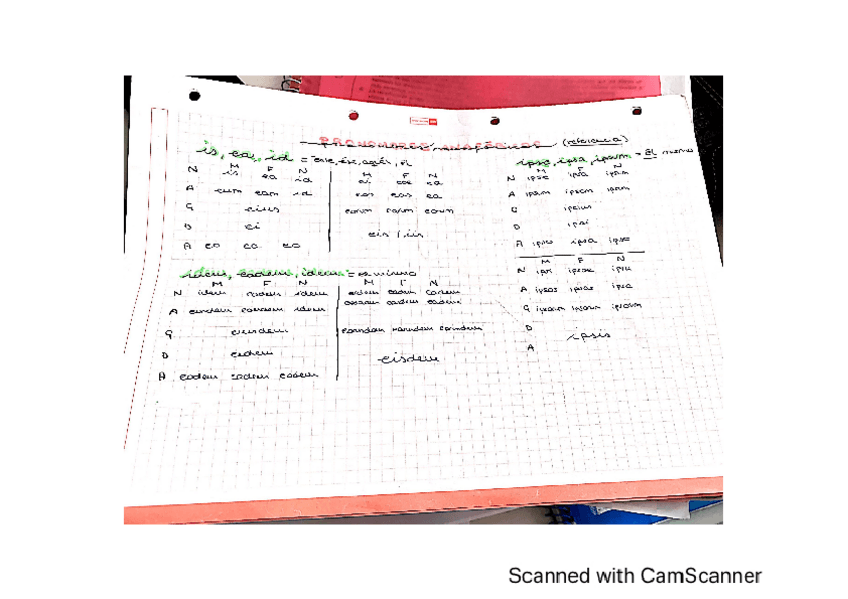 PRONOMBRES ANAFÓRICOS (referencia)
is, ea, id = ese, él
M F N
N is ea id
A eum eam id
G eius
D ei
A eo ea eo
M F N
ei eae ea
eos eas ea
eorum earum eorum
eis / iis
idem, eadem, idem =
M F N
N idem eadem idem
A eundem eandem idem
G eiusdem
D eidem
A eodem eadem eodem
M F N
eosdem easdem eadem
eorundem earundem eorundem
eisdem
ipse, ipsa, ipsum = El mismo
M F N
N ipse ipsa ipsum
A ipsum ipsam ipsum
G ipsius
D ipsi
A ipso ipsa ipso
M F N
N ipsi ipsae ipsa
A ipsos ipsas ipsa
G ipsorum ipsarum ipsorum
D
ipsis
A
Scanned with CamScanner